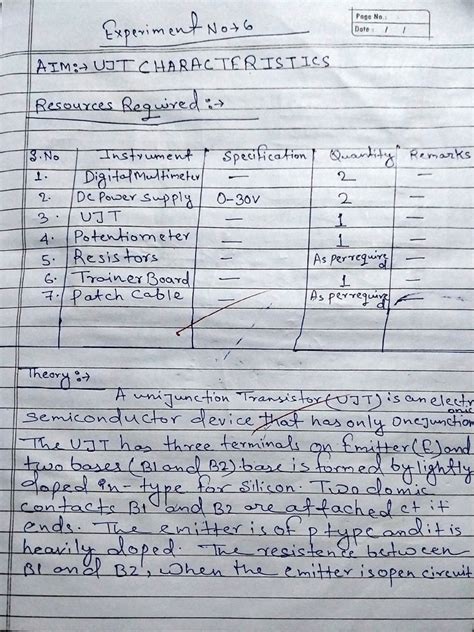 Page No.:
Date: / /
Experiment No→6
AIM:→ UJT CHARACTERISTICS
Resources Required:→
S.No Instrument Specification Quantity Remarks
1. Digital Multimeter — 2 —
2. DC Power Supply 0-30V 2 —
3. UJT — 1 —
4. Potentiometer — 1 —
5. Resistors — As per required —
6. Trainer Board — 1 —
7. Patch Cable — As per required —
Theory:→
A unijunction Transistor (UJT) is an electronic
semiconductor device that has only One junction
The UJT has three terminals on Emitter (E) and
two bases (B1 and B2) base is formed by lightly
doped in-type for Silicon. Two domic
contacts B1 and B2 are attached ct it
ends. The emitter is of p type and it is
heavily doped. The resistence between
B1 and B2, when the emitter is open circuit